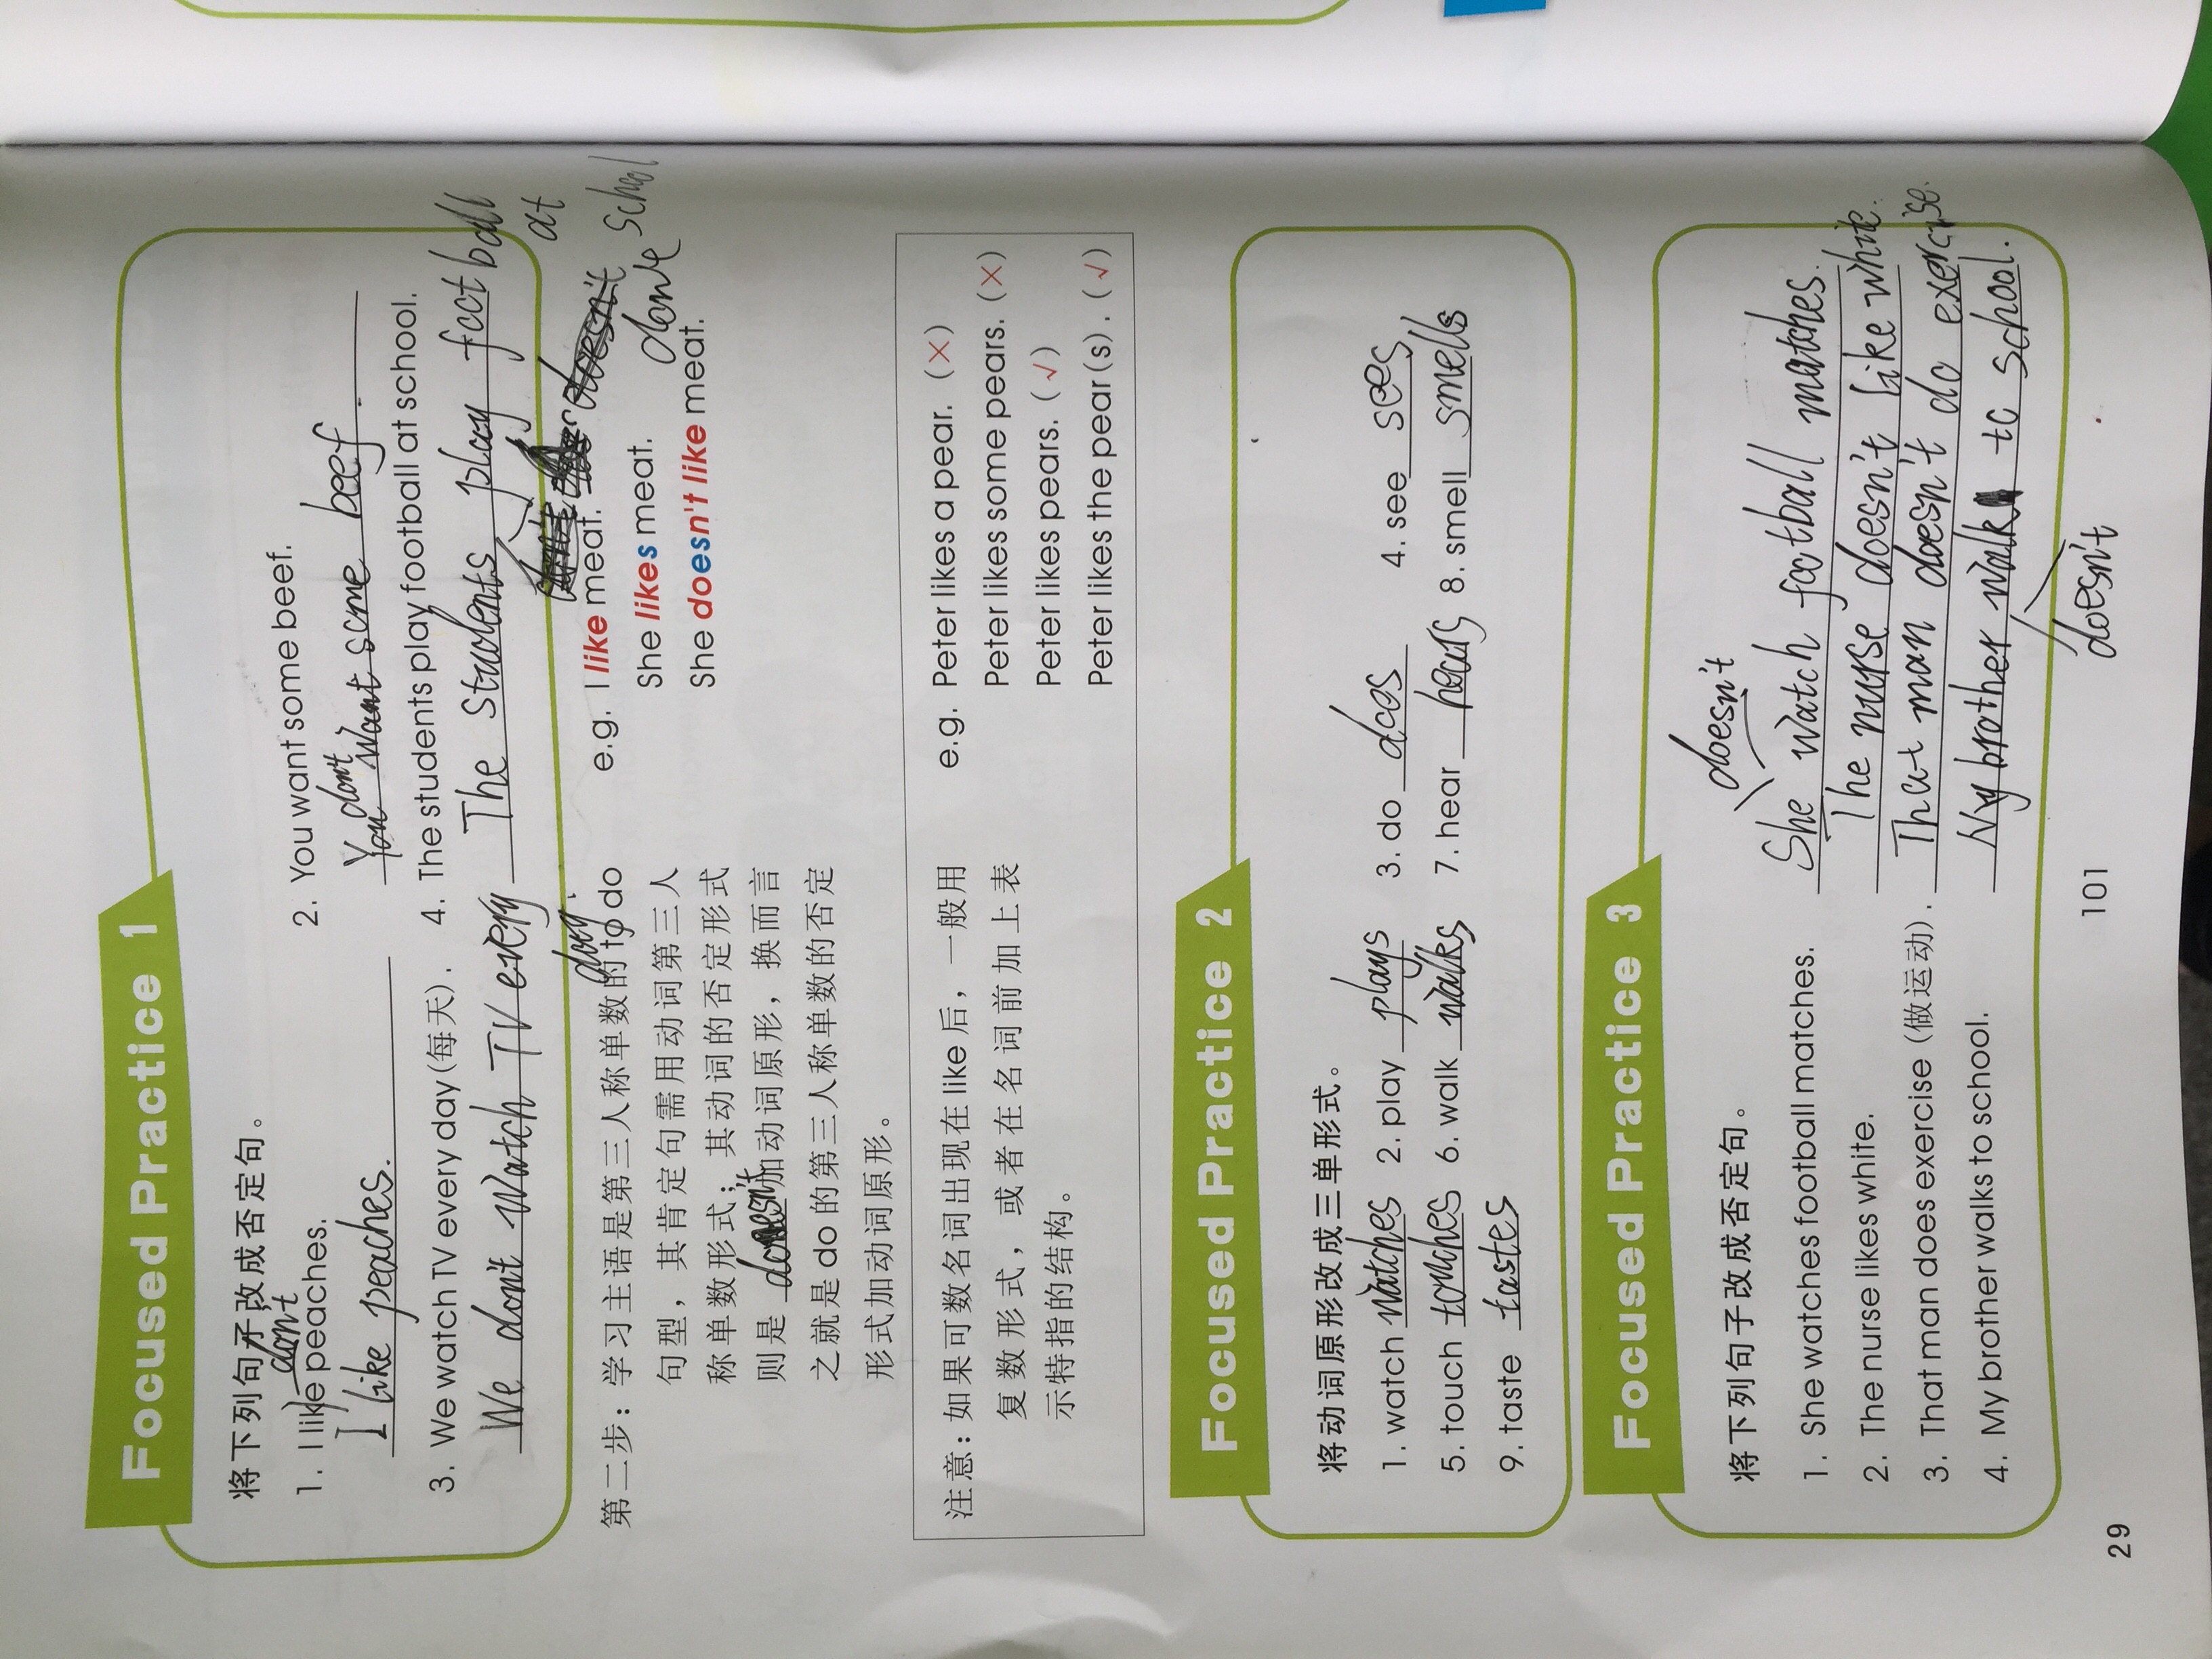 Focused Practice 1
将下列句子改成否定句。
1. I like peaches.
don't
I like peaches.
2. You want some beef.
don't
You want some beef.
3. We watch TV every day (每天).
We don't watch TV every
day.
4. The students play football at school.
The students play football
at
school
don't
第二步：学习主语是第三人称单数的 to do
句型，其肯定句需用动词第三人
称单数形式；其动词的否定形式
则是 doesn't 加动词原形，换而言
之就是 do 的第三人称单数的否定
形式加动词原形。
e.g. I like meat.
doesn't
She likes meat.
She doesn't like meat.
注意：如果可数名词出现在 like 后，一般用
复数形式，或者在名词前加上表
示特指的结构。
e.g. Peter likes a pear. (×)
Peter likes some pears. (×)
Peter likes pears. (√)
Peter likes the pear(s). (√)
Focused Practice 2
将动词原形改成三单形式。
1. watch watches 2. play plays 3. do does 4. see sees
5. touch touches 6. walk walks 7. hear hears 8. smell smells
9. taste tastes
Focused Practice 3
将下列句子改成否定句。
doesn't
1. She watches football matches. She watch football matches.
2. The nurse likes white. The nurse doesn't like white.
3. That man does exercise (做运动). That man doesn't do exercise.
4. My brother walks to school. My brother walk to school.
doesn't
29
101